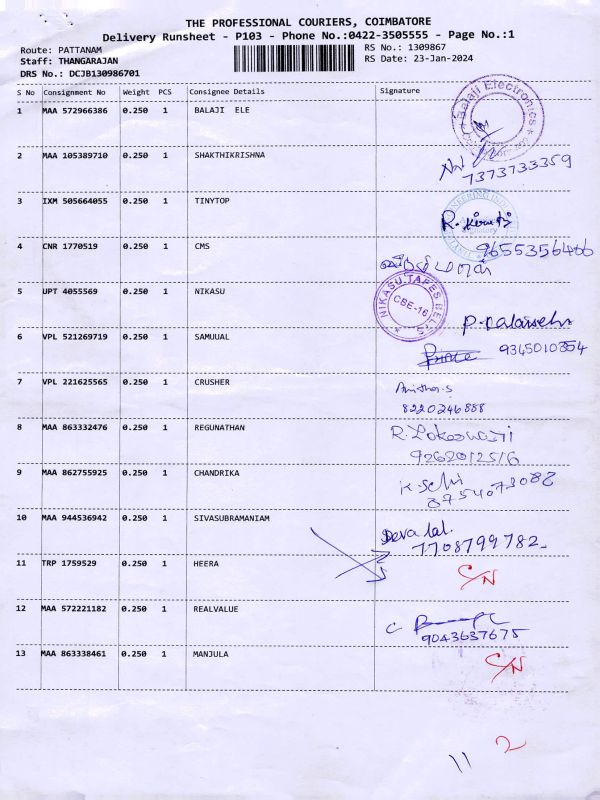 THE PROFESSIONAL COURIERS, COIMBATORE
Delivery Runsheet - P103 - Phone No.:0422-3505555 - Page No.:1
Route: PATTANAM
RS No.: 1309867
Staff: THANGARAJAN
RS Date: 23-Jan-2024
DRS No.: DCJB130986701
S No Consignment No Weight PCS Consignee Details Signature
1 MAA 572966386 0.250 1 BALAJI ELE
Balaji Electronics
2 MAA 105389710 0.250 1 SHAKTHIKRISHNA
7373733359
3 IXM 505664055 0.250 1 TINYTOP
R.
4 CNR 1770519 0.250 1 CMS
9655356406
5 UPT 4055569 0.250 1 NIKASU
NIKASU TAPES BELTS
CBE-16
6 VPL 521269719 0.250 1 SAMUUAL
9345010354
7 VPL 221625565 0.250 1 CRUSHER
8220246888
8 MAA 863332476 0.250 1 REGUNATHAN
R.
9262012516
9 MAA 862755925 0.250 1 CHANDRIKA
8754073082
10 MAA 944536942 0.250 1 SIVASUBRAMANIAM
Deva lal.
7708799782
11 TRP 1759529 0.250 1 HEERA
C/N
12 MAA 572221182 0.250 1 REALVALUE
9043637675
13 MAA 863338461 0.250 1 MANJULA
C/N
11 2